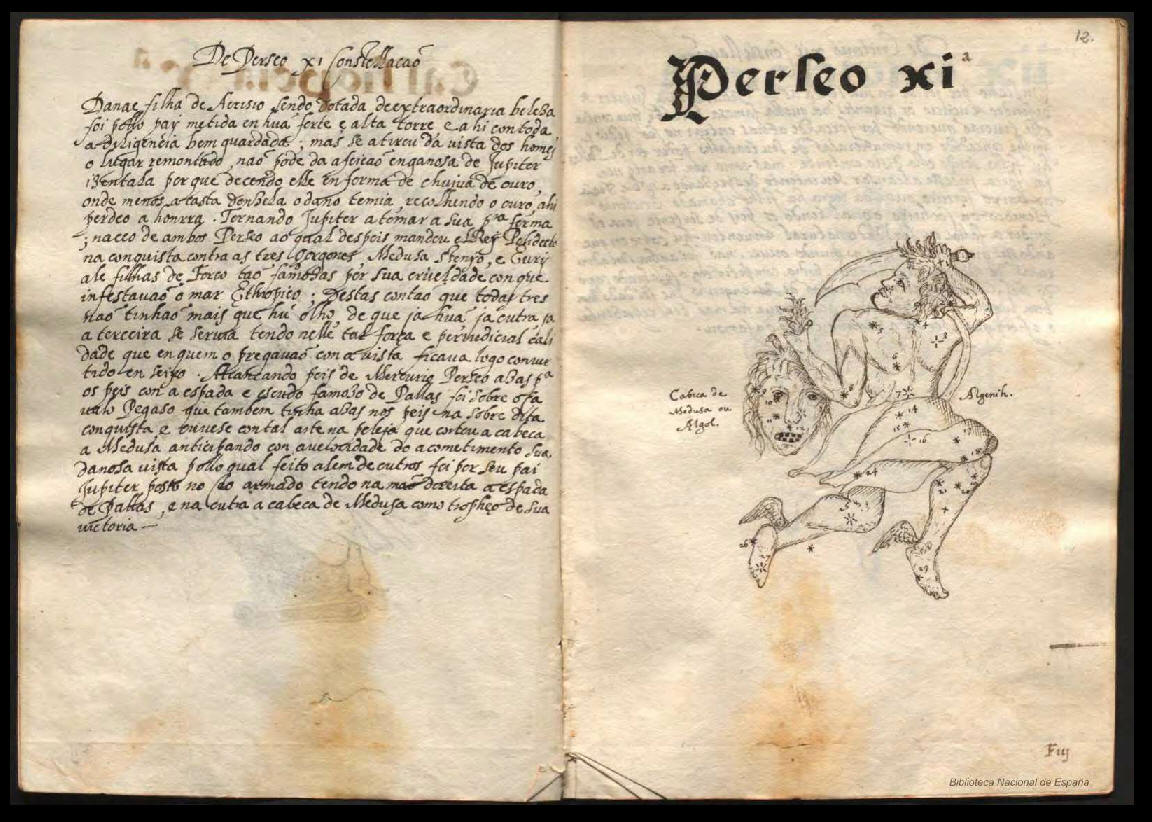 De Perseo xi Constellacaõ
Danae filha de Acrisio sendo dotada de extraordinaria belesa
foi pollo pay metida en huã forte e alta torre e ahi con toda
a diligençia bem guardada; mas se a tirou da vista dos homẽs
o lugar remontado, naõ pode da afeicaõ enganosa de Jupiter
isentala porque decendo elle en forma de chuiua de ouro,
onde menos a casta donsela o dano temia, recolhendo o ouro, ahi
perdeo a honrra. Tornando Jupiter a tomar a sua pª forma
naceo de ambos Perseo ao qual despois mandou el Rey
na conquista contra as tres Gorgones, Medusa, Stenyo, e Eury
ale filhas de Forco taõ famosas por sua crueldade con que
infestauaõ o mar Ethiopico; Destas contaõ que todas tres
naõ tinhaõ mais que hũ olho de que ja huã ja outra ja
a terceira se seruia tendo nelle tal força e perjudicial cali
dade que en quem o pregauaõ con a vista ficaua logo conuer
tido en seixo. Alcançando pois de Mercurio Perseo asas pª
os peis con a espada e escudo famoso de Pallas foi sobre o
Pegaso que tambem tinha asas nos peis na sobre dita
conquista e ouuese con tal arte na peleja que cortou a cabeca
a Medusa anticipando con a velocidade do acometimento sua
danosa vista pollo qual feito alem de outros foi por seu pai
Jupiter posto no ceo armado tendo na maõ direita a espada
de Pallas, e na outra a cabeca de Medusa como tropheo de sua
victoria —
12.
Perseo xiª
Cabeca de
Medusa ou
Algol.
Algenih.
Fiij
Biblioteca Nacional de España